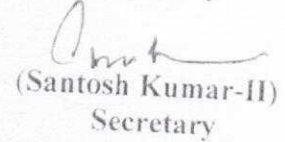 (Santosh Kumar-II)
Secretary